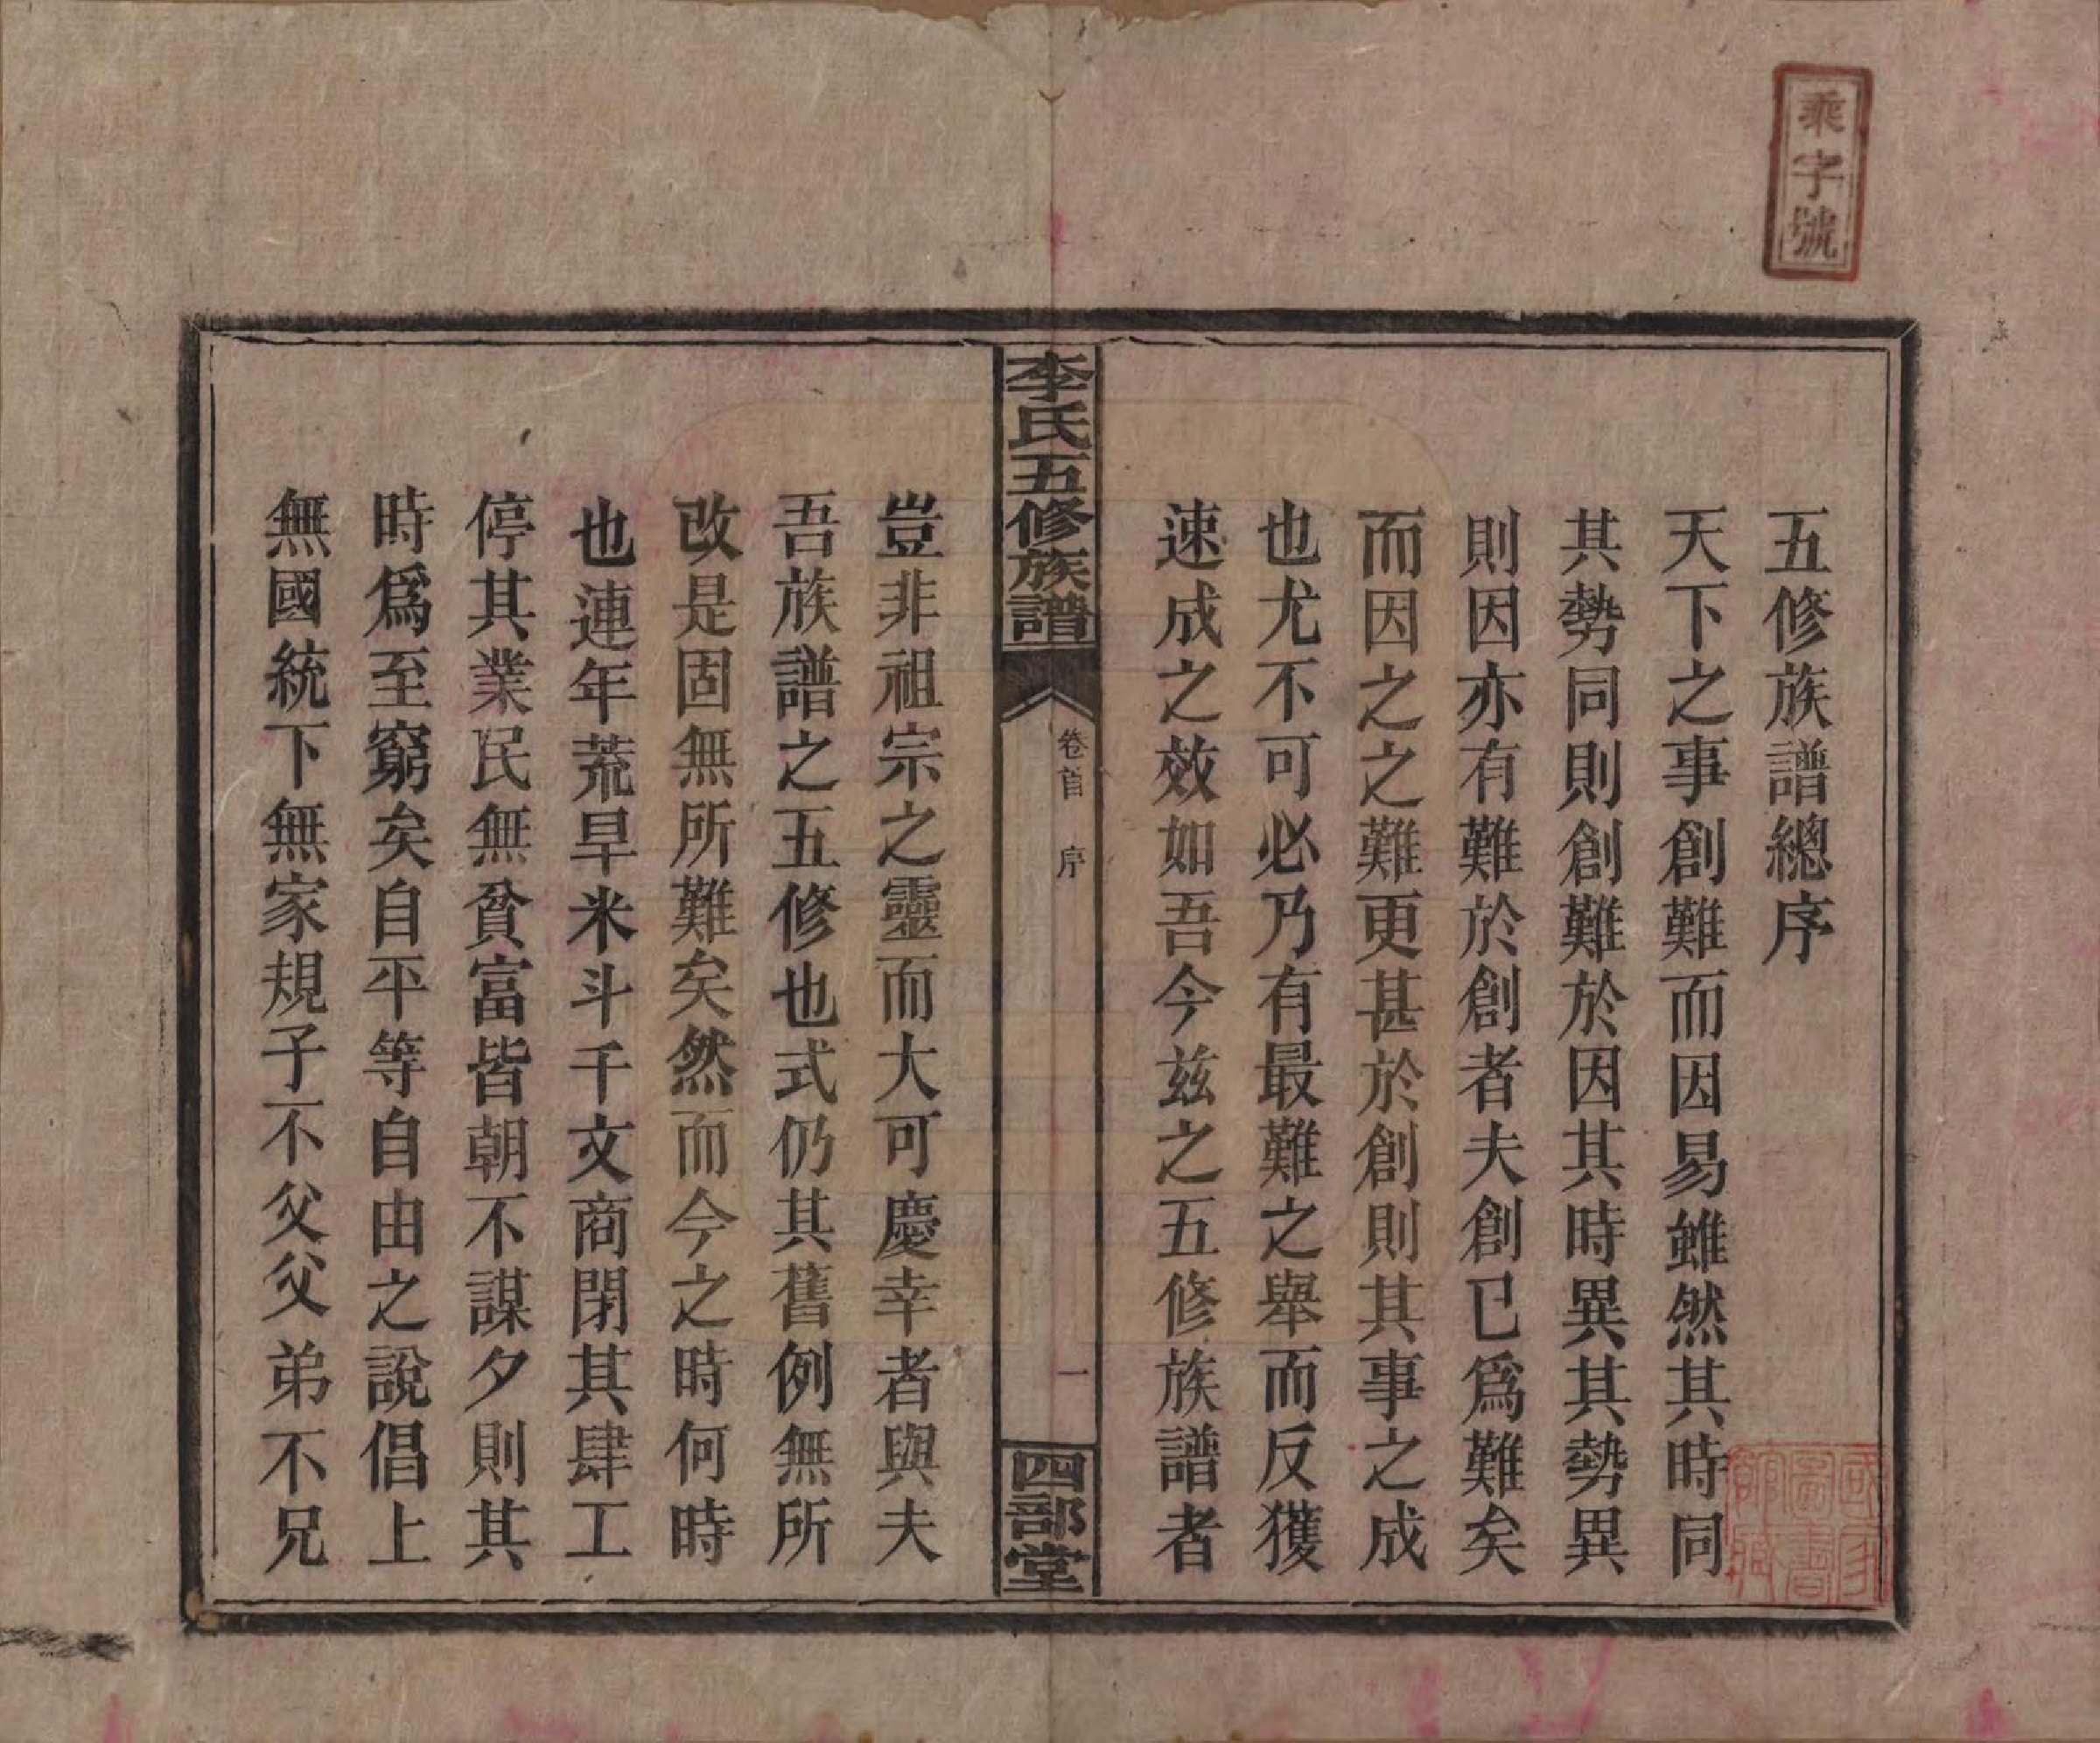 乘字號
五修族譜總序
天下之事創難而因易雖然其時同
其勢同則創難於因其時異其勢異
則因亦有難於創者夫創已爲難矣
而因之之難更甚於創則其事之成
也尤不可必乃有最難之舉而反獲
速成之效如吾今兹之五修族譜者
國家圖書館藏
李氏五修族譜
卷首 序
一
四部堂
豈非祖宗之靈而大可慶幸者與夫
吾族譜之五修也式仍其舊例無所
改是固無所難矣然而今之時何時
也連年荒旱米斗千文商閉其肆工
停其業民無貧富皆朝不謀夕則其
時爲至窮矣自平等自由之說倡上
無國統下無家規子不父父弟不兄